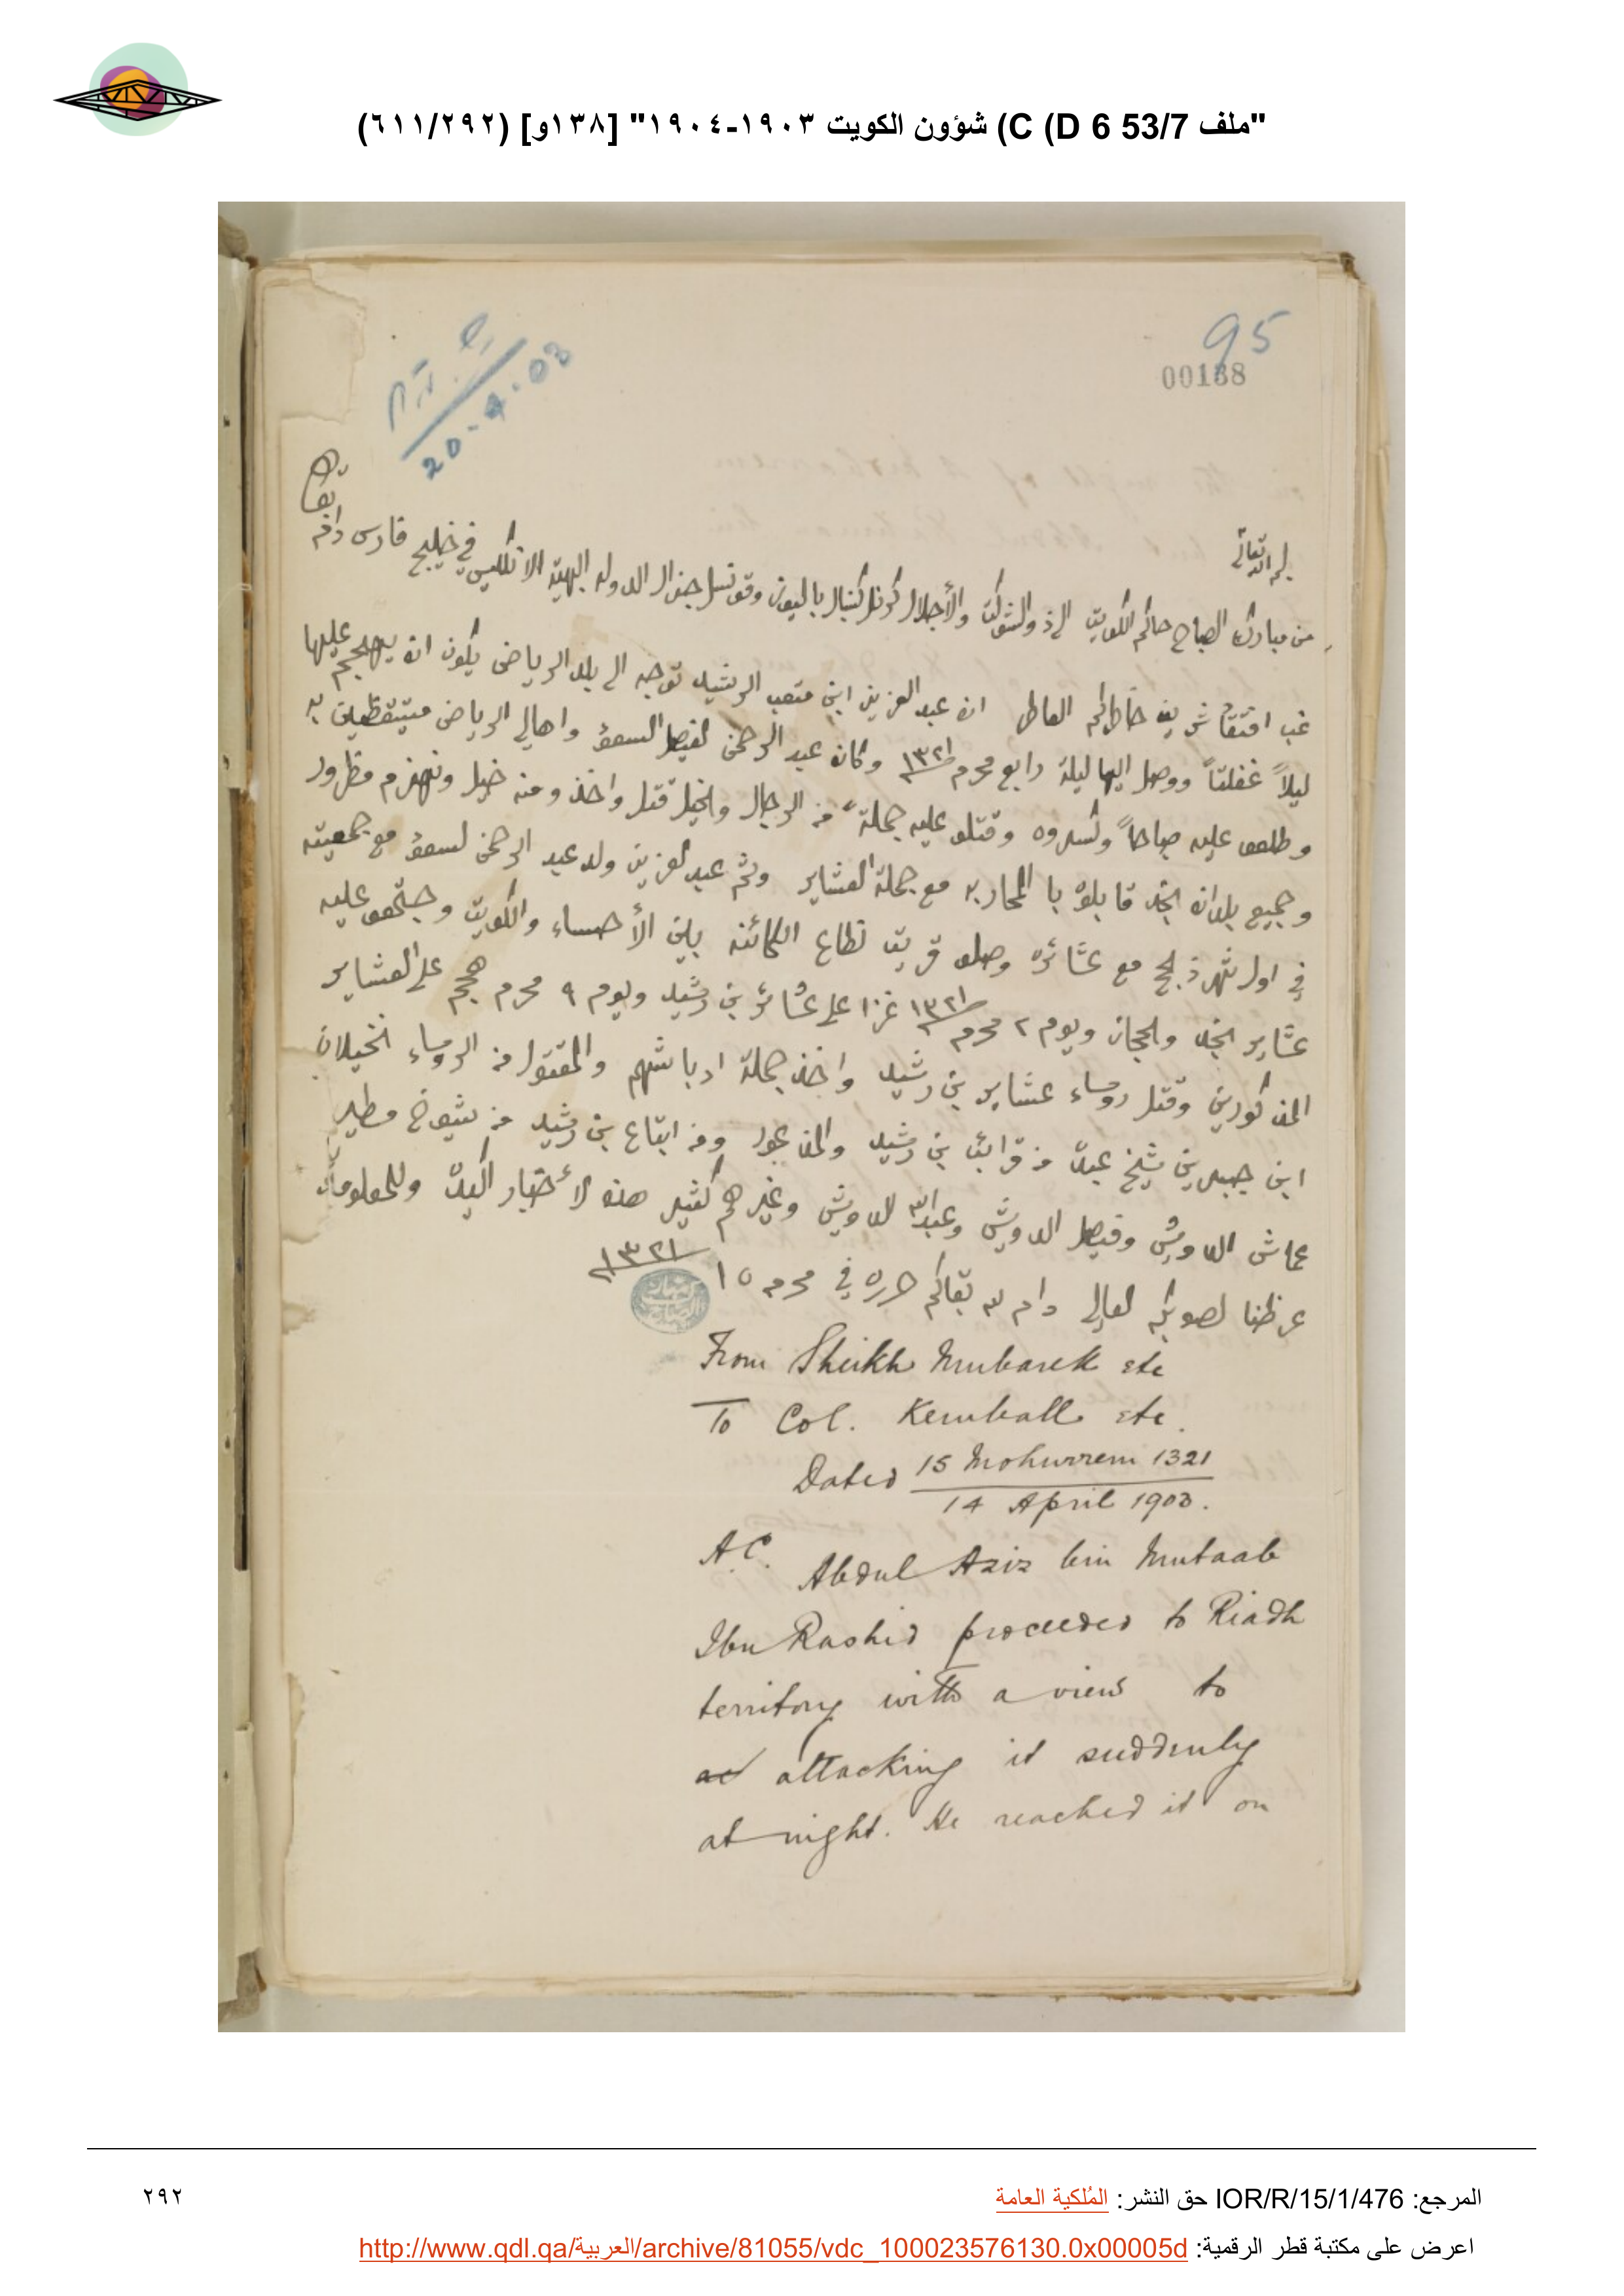 "ملف 53/7 C (D 6) شؤون الكويت ١٩٠٣-١٩٠٤" [١٣٨و] (٦١١/٢٩٢)
95
00138
20-4-03
بسم الله تعالى
من مبارك الصباح حاكم الكويت الى ذو الشوكت والأجلال كرنل كنبال باليوز وقونسل جنرال الدوله البهيّة الانگليس في خليج فارس دام
بقاه
غب افتقاد شريف خاطركم العاطر ان عبد العزيز ابن متعب الرشيد توجه الى بلد الرياض يكون انه يهجم عليها
ليلاً غفلتاً ووصل اليها ليلة رابع محرم ١٣٢١ وكان عبد الرحمن الفيصل السعود واهالي الرياض متيقظين به
وطلعو عليه صباحاً وكسروه وقتلو عليه جملة من الرجال والخيل قتل واخذ ومنه خيل ونهزم مطرود
وجميع بلدان نجد قابلوه بالمحاربه مع جملة العشاير وثم عبد العزيز ولد عبد الرحمن السعود مع جمعيته
في اول شهر ذالحج مع عشائره وصلو قريت نطاع الكائنه بين الأحساء والكويت وجتمعو عليه
عشاير نجد والحجاز ويوم ٢ محرم ١٣٢١ غزا على عشائر بن رشيد ويوم ٩ محرم هجم على العشاير
المذكورين وقتل روساء عشاير بن رشيد واخذ جملة ادباشهم والمقتول من الروساء الخيلان
ابن جبرين شيخ عبدة من قرائب بن رشيد ومن اتباع بن رشيد من شيوخ مطير
عماش الدويش وفيصل الدويش وعبدالله الدويش وغيرهم كثير هذه الأخبار اكيدة وللمعلوم
عرظنا لصوبكم العالي دام الله بقاكم حرره في محرم ١٥ ١٣٢١
From Sheikh Mubarek etc
To Col. Kemball etc.
Dated 15 Mohurrem 1321
14 April 1903.
A.C. Abdul Aziz bin Mutaab
Ibn Rashid proceeded to Riadh
territory with a view to
attacking it suddenly
at night. He reached it on
المرجع: IOR/R/15/1/476 حق النشر: المُلكية العامة
٢٩٢
اعرض على مكتبة قطر الرقمية: http://www.qdl.qa/العربية/archive/81055/vdc_100023576130.0x00005d